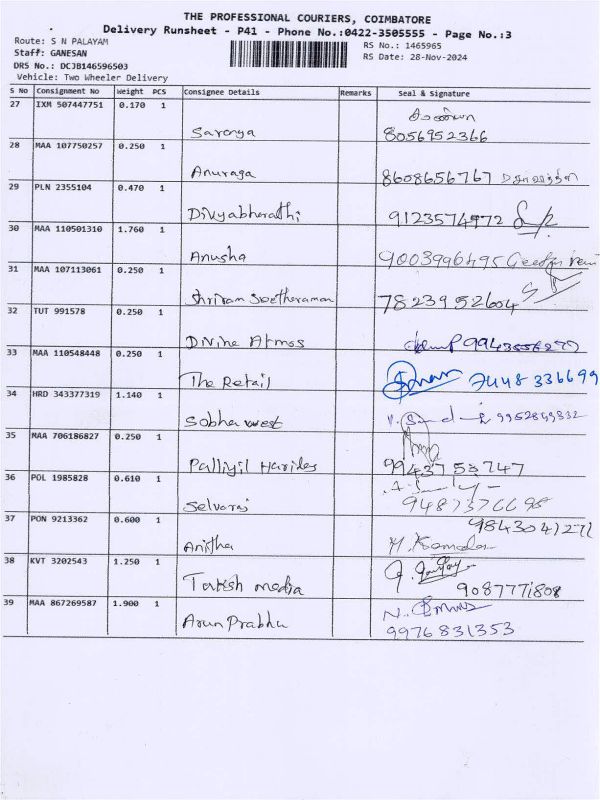 THE PROFESSIONAL COURIERS, COIMBATORE
Delivery Runsheet - P41 - Phone No.:0422-3505555 - Page No.:3
Route: S N PALAYAM
Staff: GANESAN
DRS No.: DCJB146596503
Vehicle: Two Wheeler Delivery
RS No.: 1465965
RS Date: 28-Nov-2024
S No Consignment No Weight PCS Consignee Details Remarks Seal & Signature
27 IXM 507447751 0.170 1
Saranya 8056952366
28 MAA 107750257 0.250 1
Anuraga 8608656767
29 PLN 2355104 0.470 1
Divyabharathi 9123574972
30 MAA 110501310 1.760 1
Anusha 9003996495
31 MAA 107113061 0.250 1
Shriram Seetharaman 7823952604
32 TUT 991578 0.250 1
Divine Atmos
33 MAA 110548448 0.250 1
The Retail 7448 336699
34 HRD 343377319 1.140 1
Sobha west 9952849832
35 MAA 706186827 0.250 1
Palliyil Harides 9943753747
36 POL 1985828 0.610 1
Selvaraj
37 PON 9213362 0.600 1
Anitha
38 KVT 3202543 1.250 1
Tarish media 9087771808
39 MAA 867269587 1.900 1
Arun Prabhu 9976831353